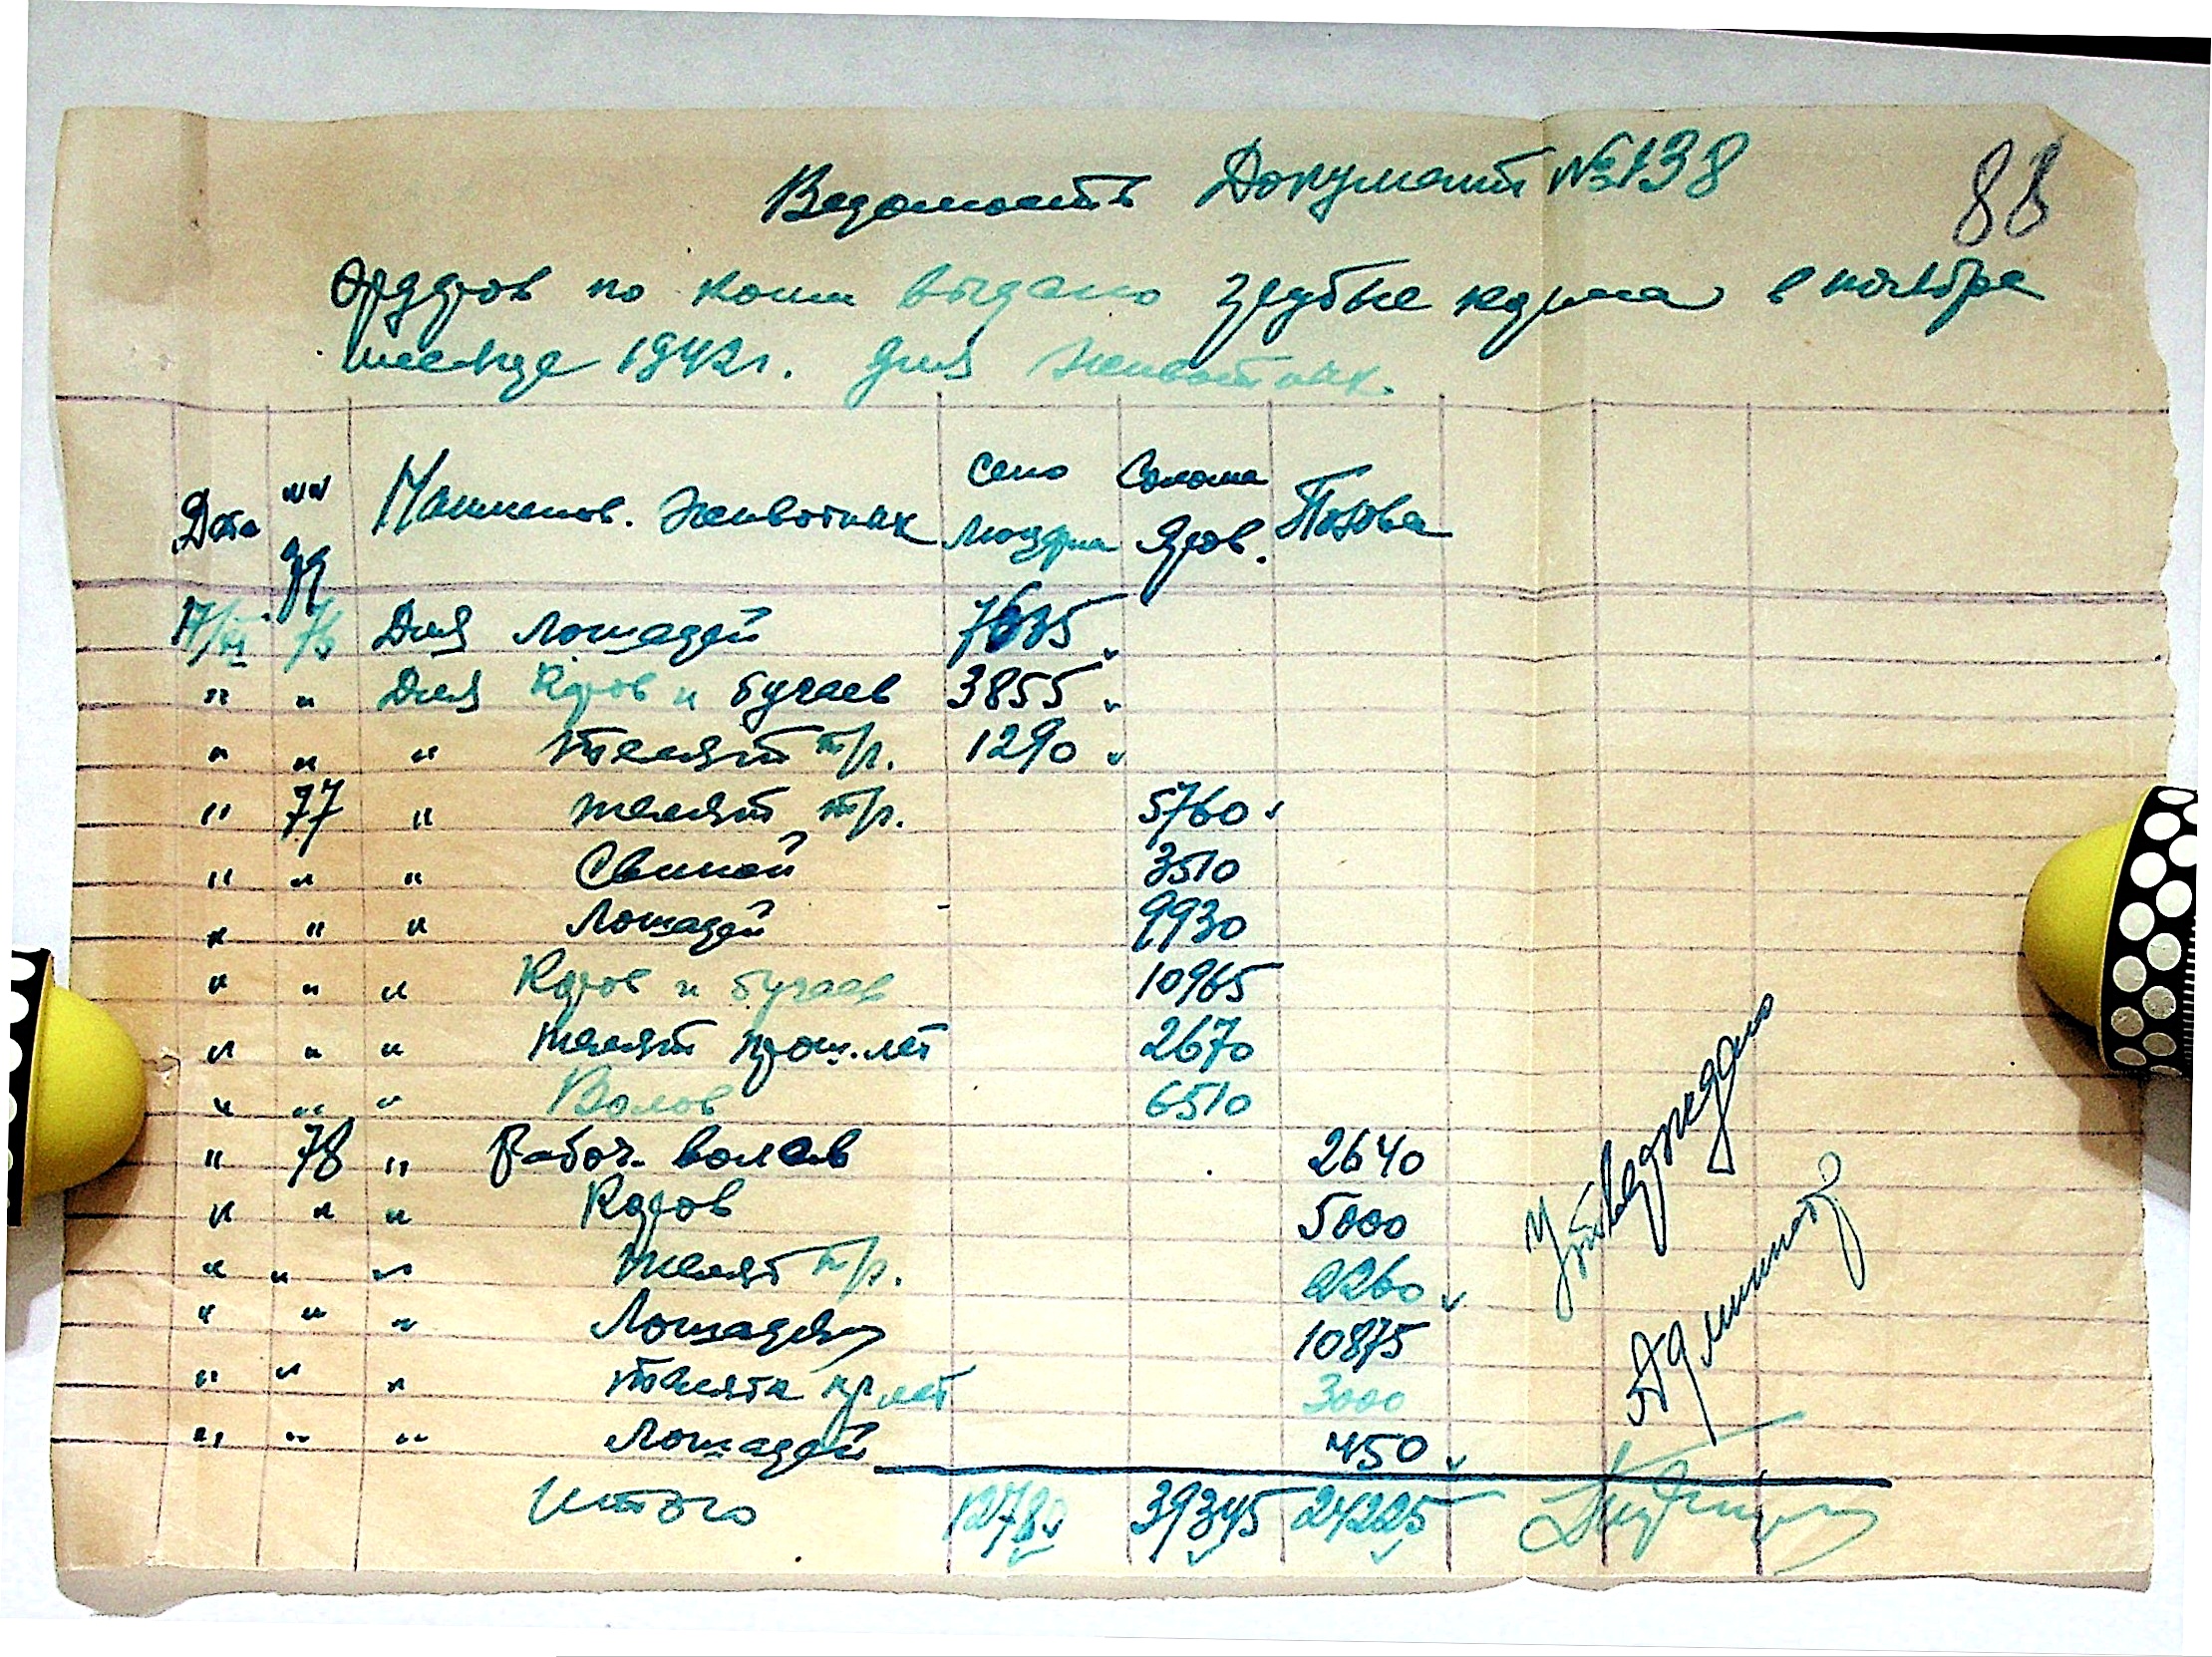 Ведомость Документ №138
88
Ордеров по коим выдано грубые корма в ноябре
месяце 1942г. для животных.
Дата №№ Наименов. животных сено люцерна Солома Яров. Полова
17/XI 76 Для лошадей 7635
" " Для Коров и бугаев 3855
" " " телят т/г. 1290
" 77 " телят т/г. 5760
" " " Свиней 3510
" " " Лошадей 9930
" " " Коров и бугаев 10965
" " " телят прош.лет 2670
" " " Волов 6510
" 78 " Рабоч. волов 2640
" " " Коров 5000
" " " телят т/г. 2260
" " " Лошадей 10875
" " " телята пр лет 3000
" " " лошадей 450
Итого 12780 39345 24225
Утверждаю